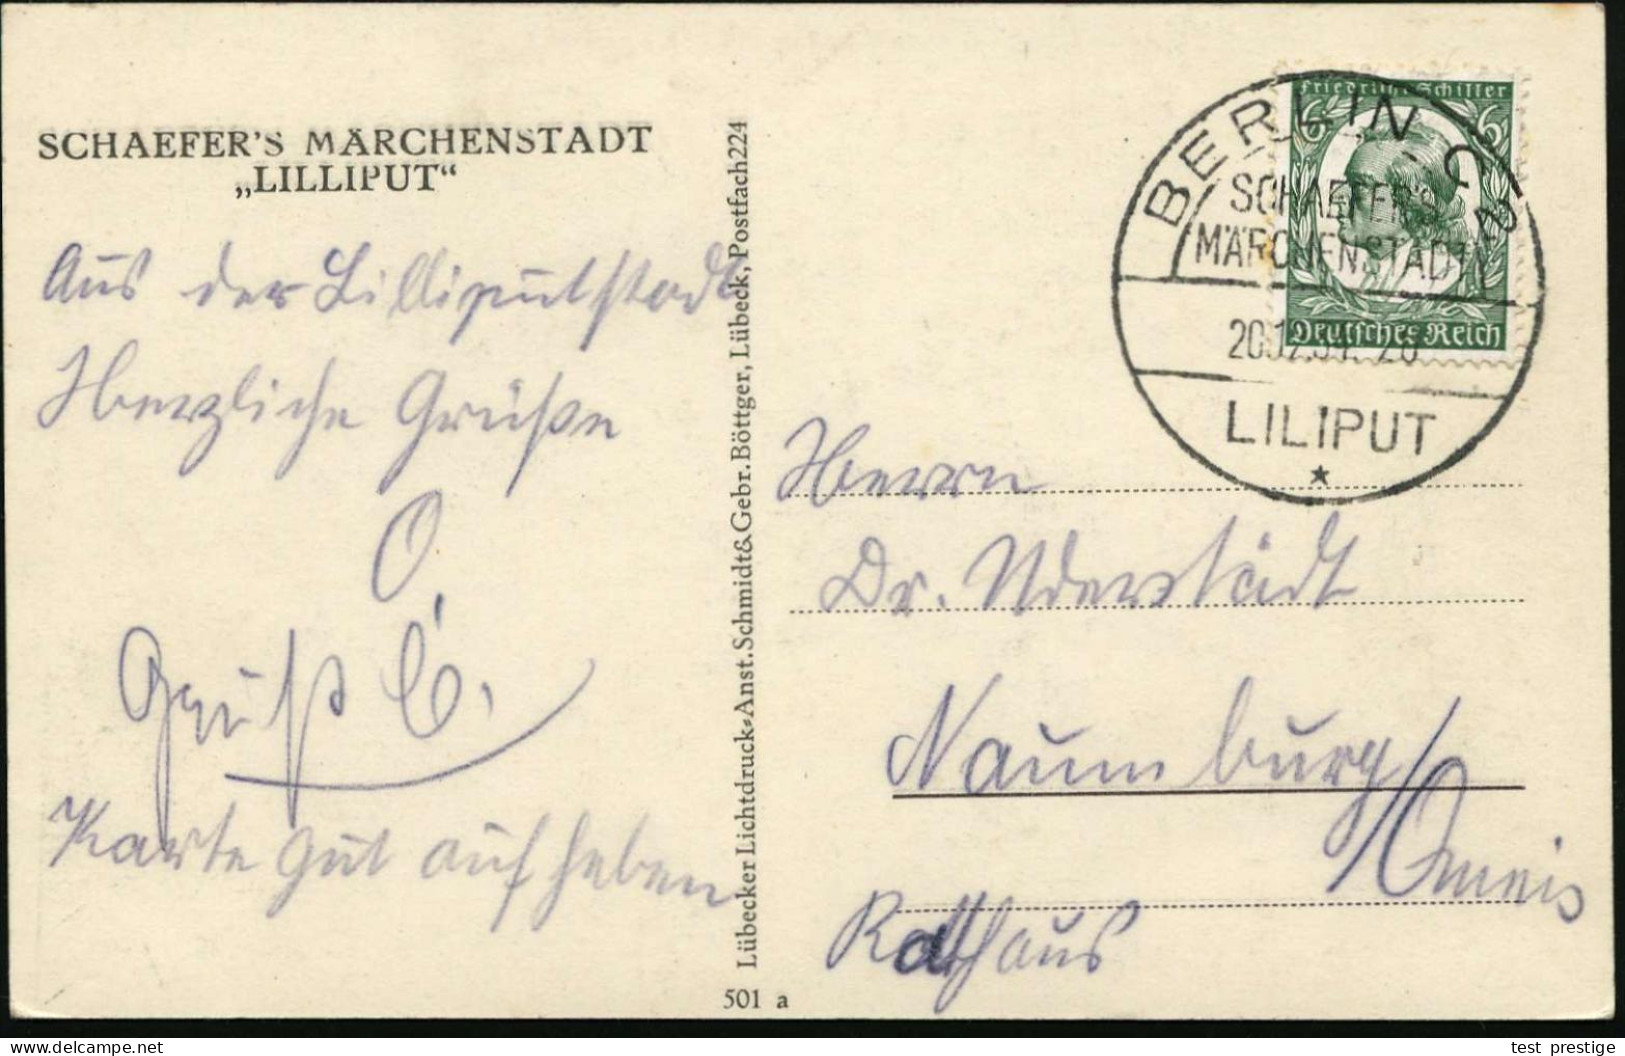 SCHAEFER'S MÄRCHENSTADT
„LILLIPUT“
Aus der Lilliputstadt
Herzliche Grüße
Karte gut aufheben
Lübecker Lichtdruck-Anst. Schmidt & Gebr. Böttger, Lübeck, Postfach 224
501 a
Friedrich Schiller
6 6
Deutsches Reich
BERLIN C 2
SCHAEFER'S
MÄRCHENSTADT
20.12.34. 20
LILIPUT
Herrn
Dr.
Naumburg/
Rathaus
test prestige